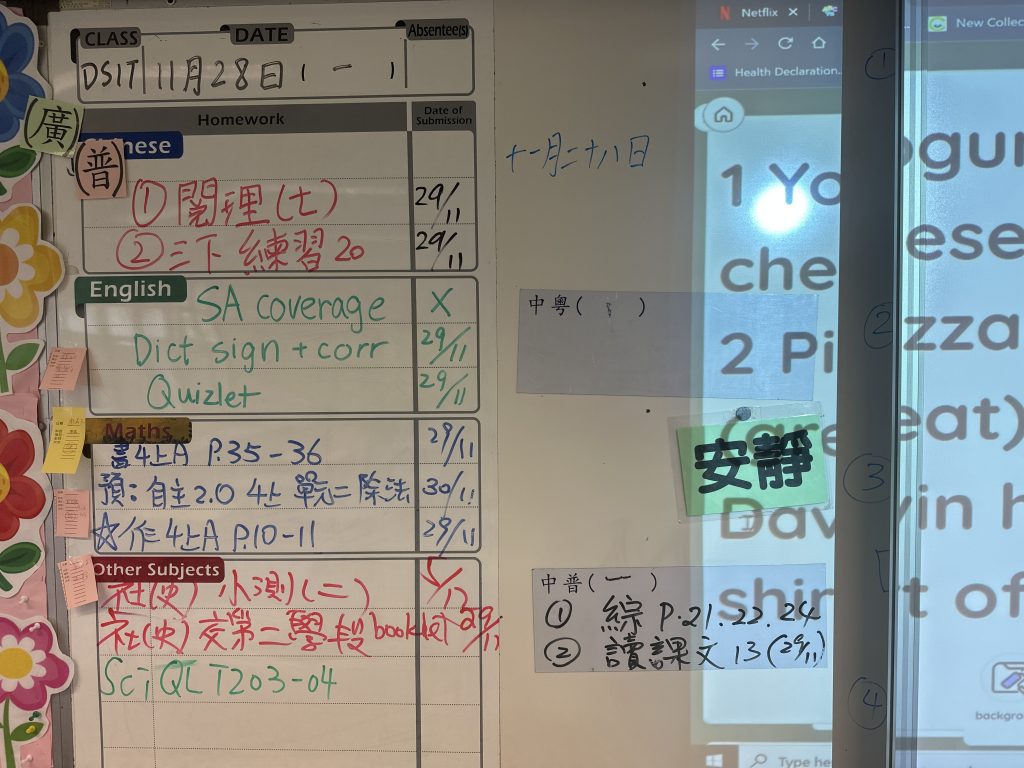 CLASS DATE Absentee(s)
D5IT 11月28日(一)
Homework Date of Submission
(廣)
(普)
nese
① 閱理(七) 29/11
② 三下 練習20 29/11
English
SA coverage X
Dict sign + corr 29/11
Quizlet 29/11
Maths
書4上A P.35-36 29/11
預:自主2.0 4上 單元二 除法 30/11
☆作4上A P.10-11 29/11
Other Subjects
社(史) 小測(二)
社(史) 交第二學段 booklet 29/11
Sci QLT203-04
十一月二十八日
中粵( )
安靜
中普(一)
① 綜 P.21.22.24
② 讀課文13(29/11)
Netflix
New Collec
Health Declaration..
1 Yo ogur
che ese
2 Pi zza
(gr eat)
Dav vin h
shir t of
backgro
Type he
①
②
③
④